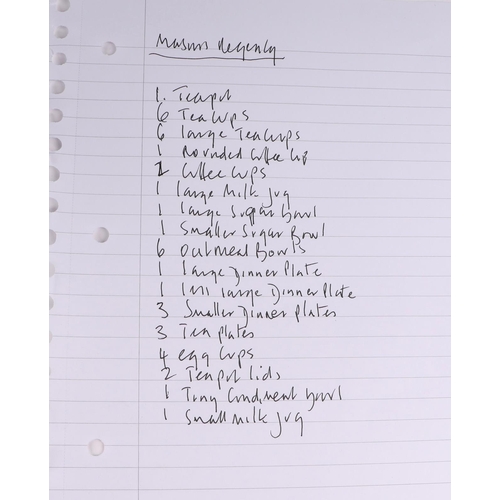 Masons Regency
1. Teapot
6 Tea Cups
6 large Tea Cups
1 Rounded Coffee Cup
2 Coffee Cups
1 large Milk Jug
1 large Sugar Bowl
1 Smaller Sugar Bowl
6 Oatmeal Bowls
1 large Dinner Plate
1 less large Dinner Plate
3 Smaller Dinner Plates
3 Tea plates
4 egg Cups
2 Teapot lids
1 Tiny Condiment bowl
1 Small Milk Jug